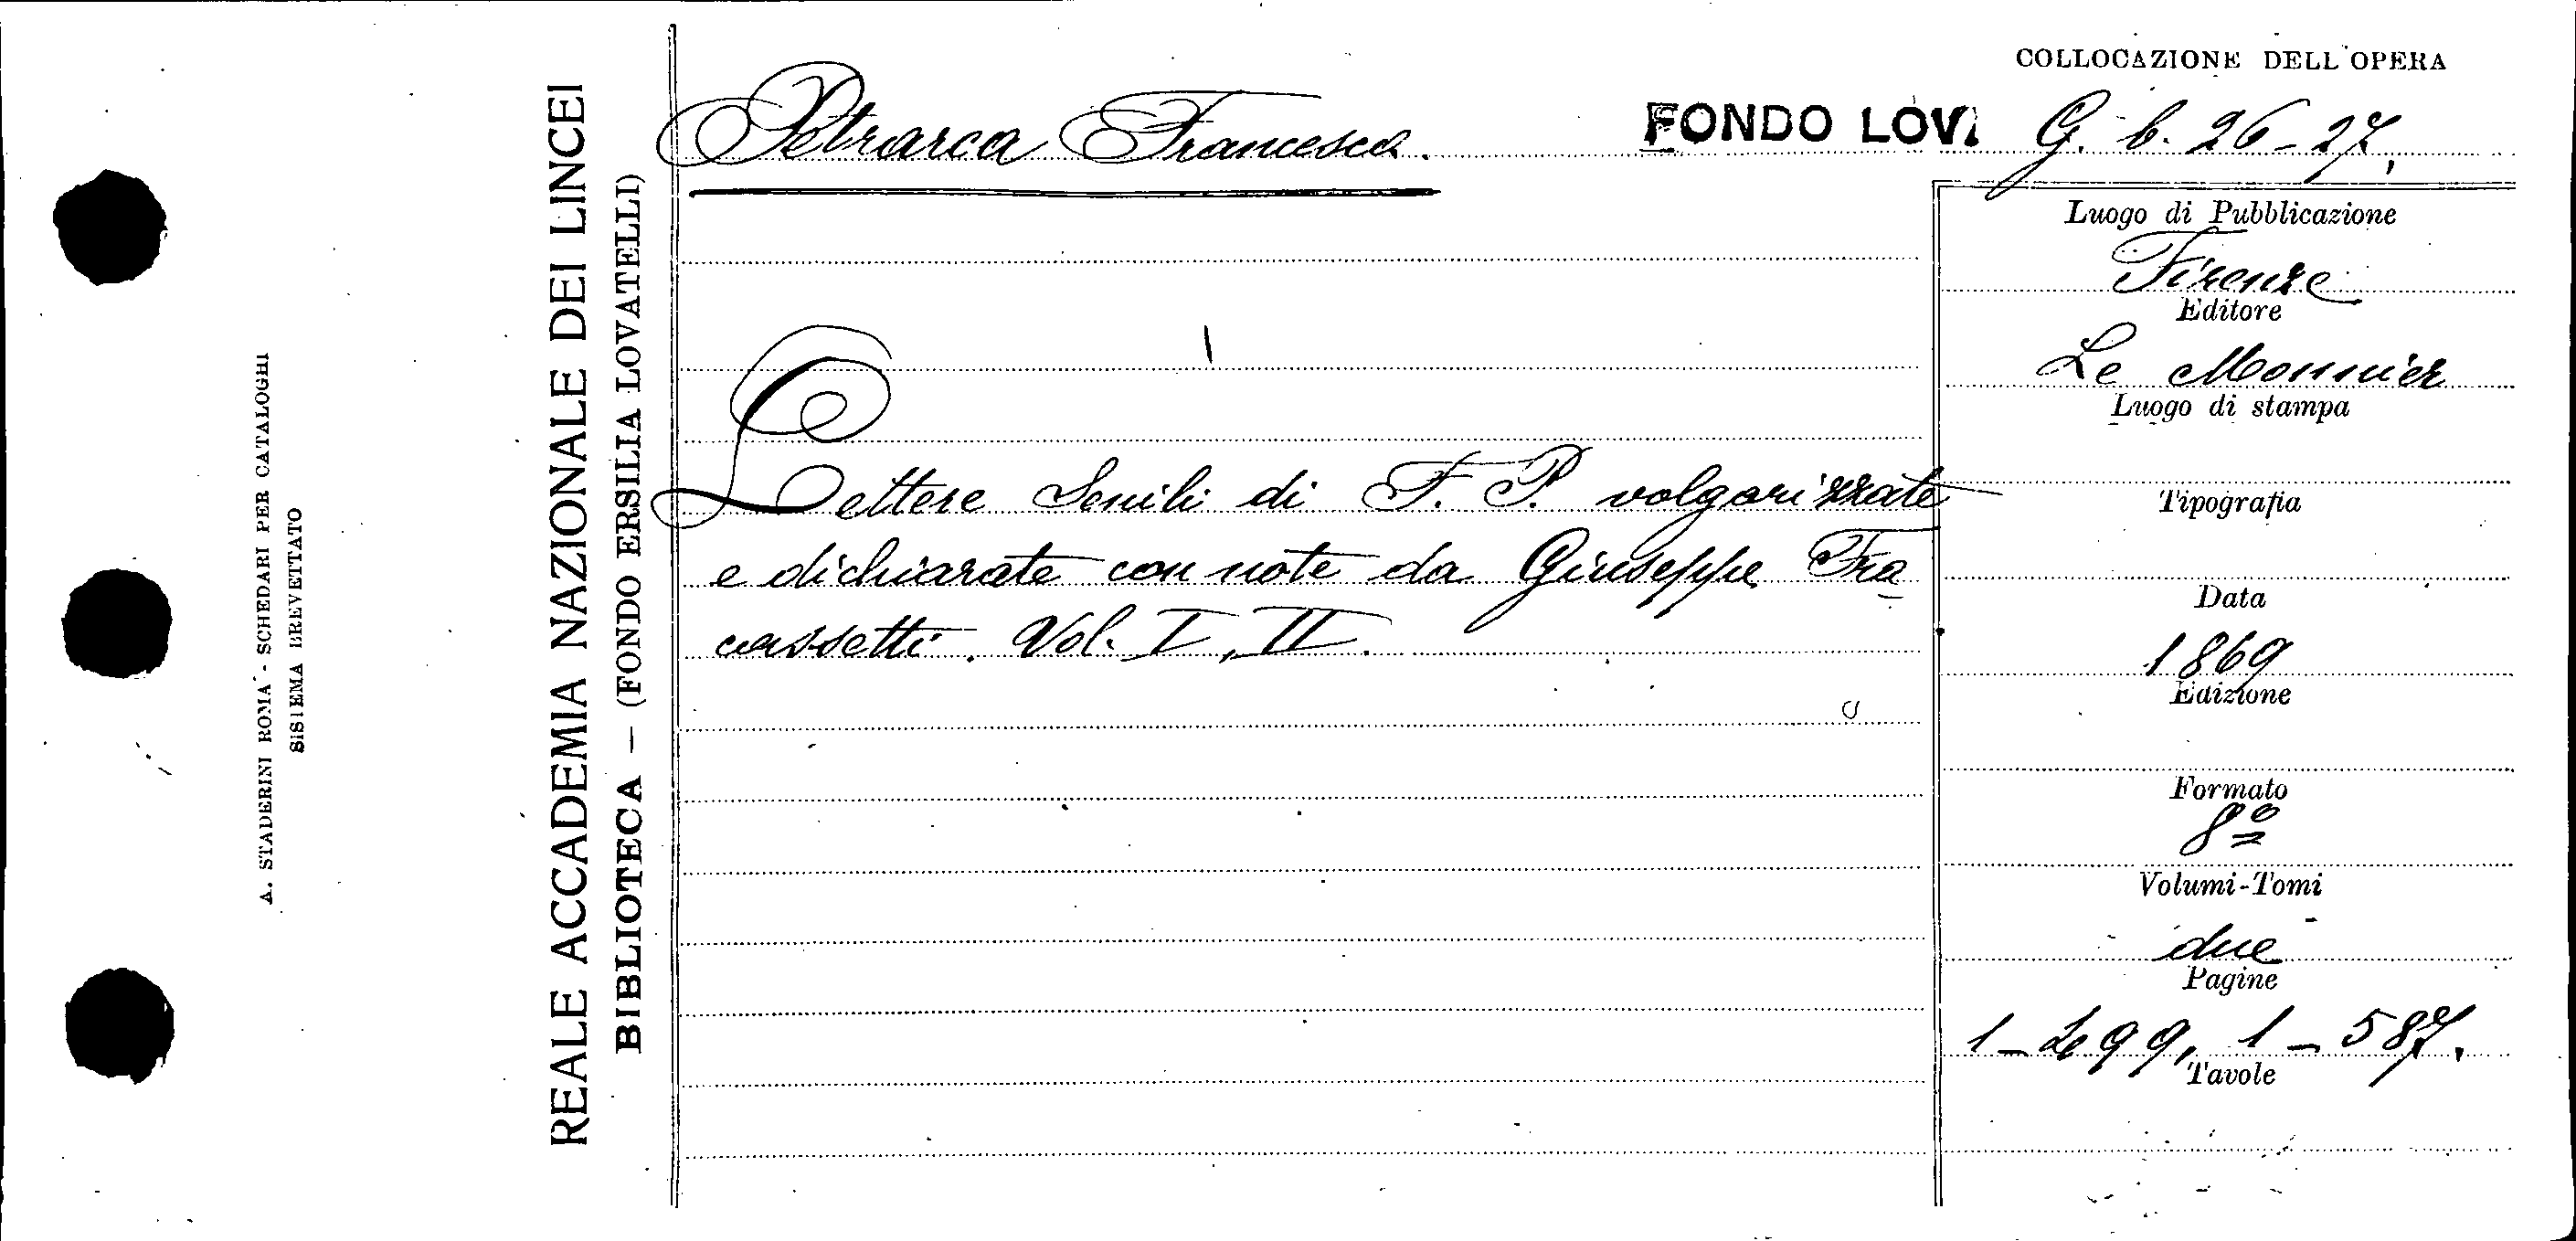 COLLOCAZIONE DELL'OPERA
Petrarca Francesco.
FONDO LOV. G. b. 26-27.
Luogo di Pubblicazione
Firenze
Editore
Le Monnier
Luogo di stampa
Lettere Senili di F. P. volgarizzate
e dichiarate con note da Giuseppe Fra
cassetti. Vol. I, II.
Tipografia
Data
1869
Edizione
Formato
8º
Volumi-Tomi
due
Pagine
1-499, 1-587.
Tavole
REALE ACCADEMIA NAZIONALE DEI LINCEI
BIBLIOTECA — (FONDO ERSILIA LOVATELLI)
A. STADERINI ROMA - SCHEDARI PER CATALOGHI
SISTEMA BREVETTATO